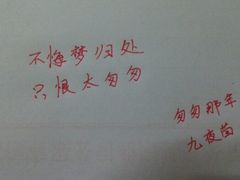 不悔梦归处
只恨太匆匆
匆匆那年
九夜茴